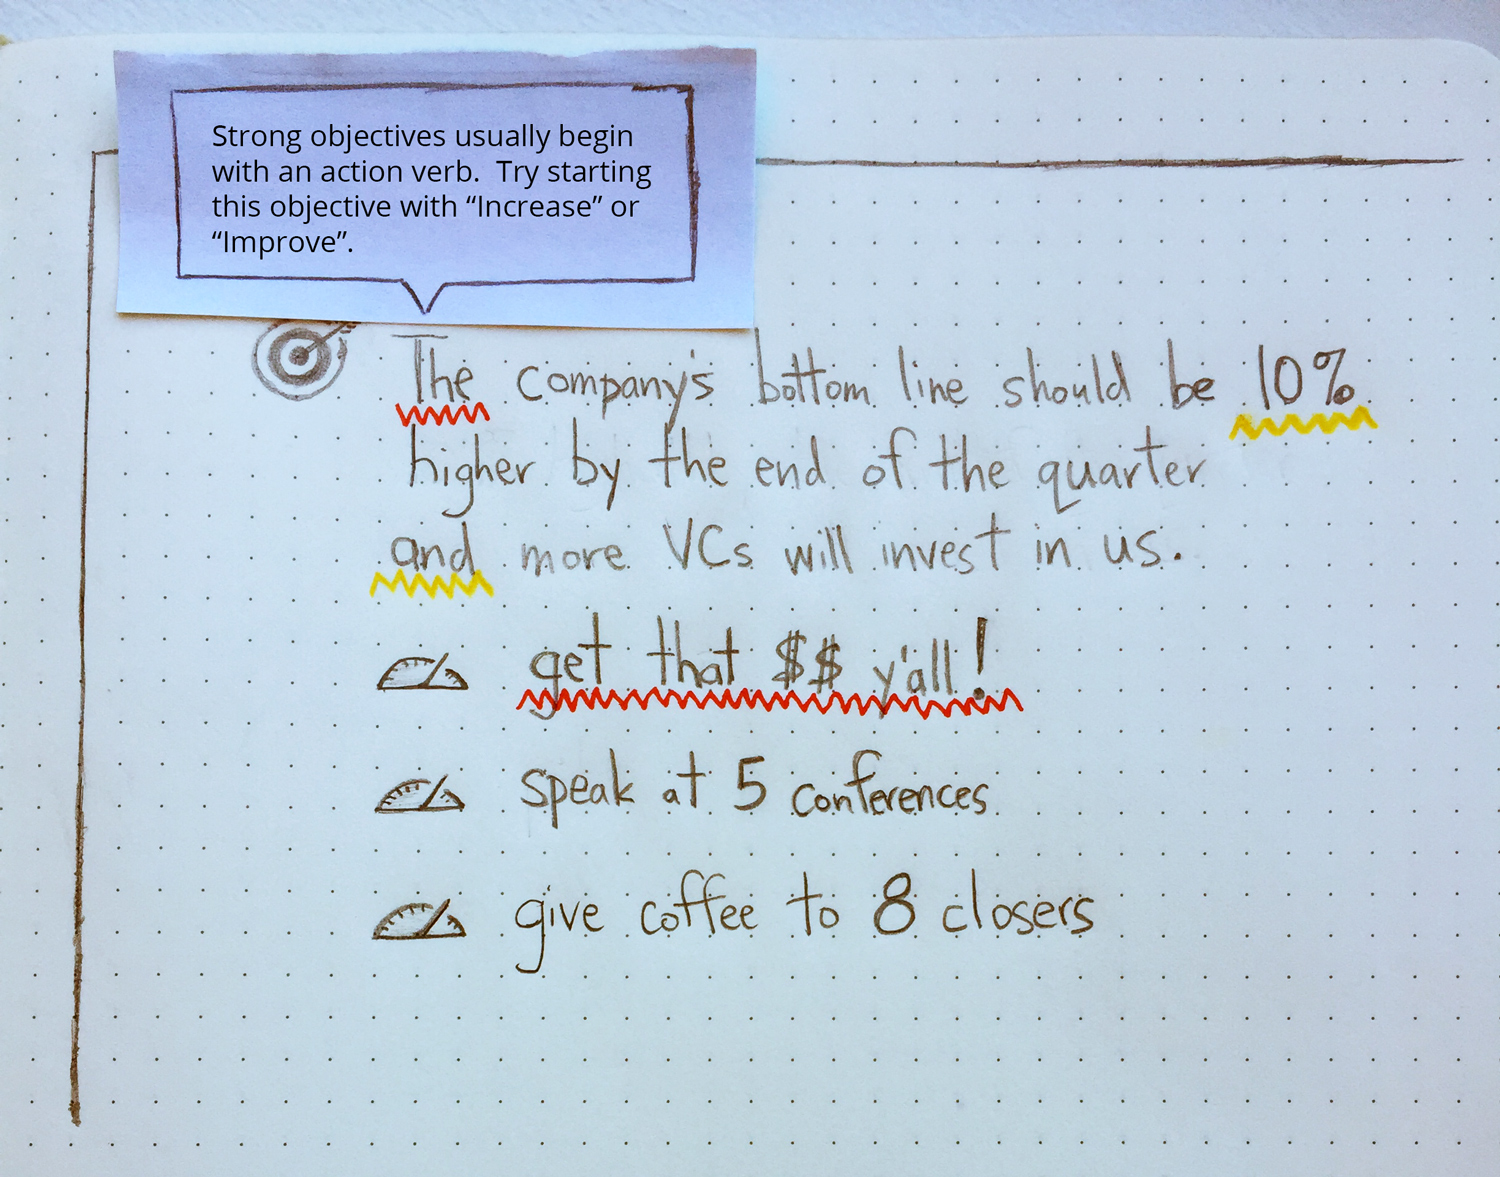 Strong objectives usually begin
with an action verb.  Try starting
this objective with “Increase” or
“Improve”.
The company's bottom line should be 10%
higher by the end of the quarter
and more VCs will invest in us.
get that $$ y'all!
speak at 5 conferences
give coffee to 8 closers